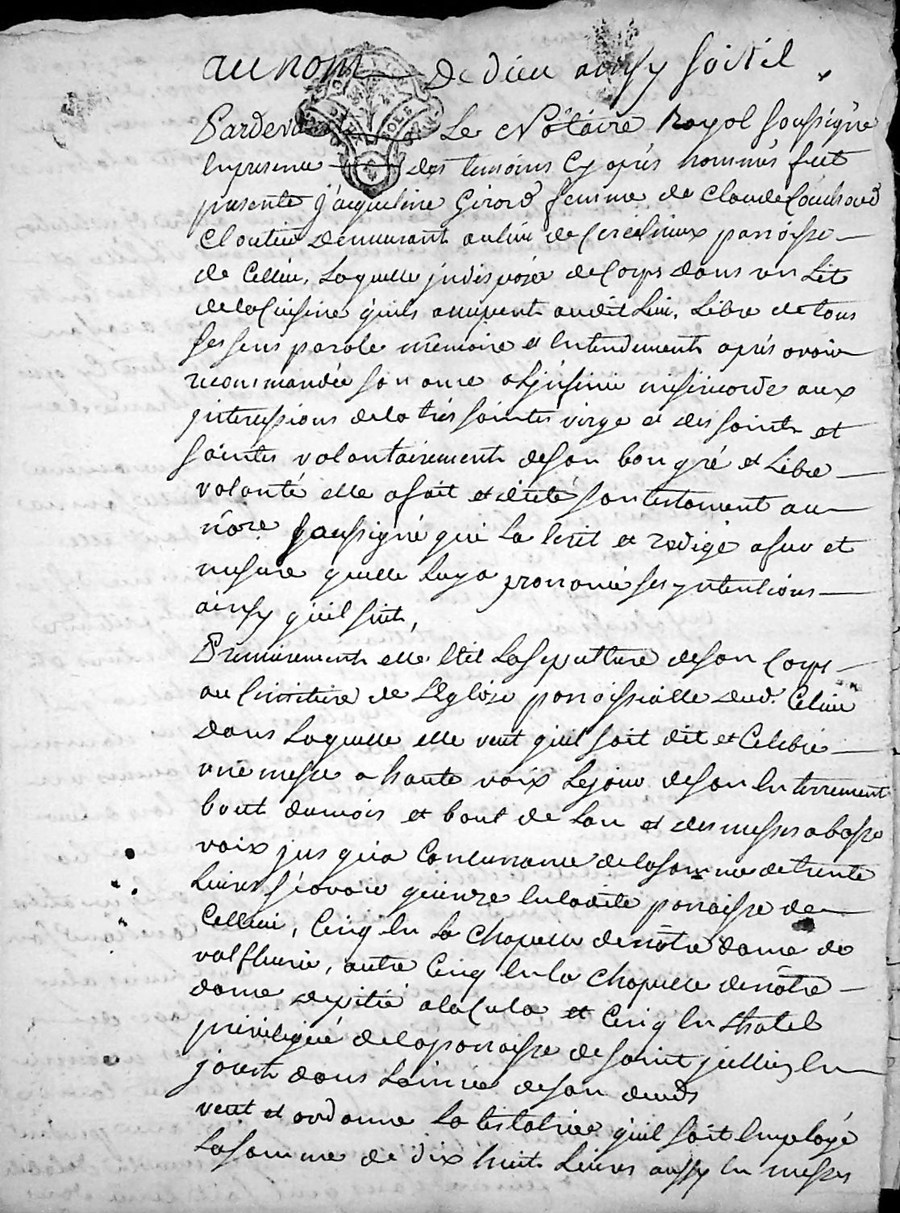 au nom de dieu ainsy soit il
Pardevant Le Notaire Royal soussigné
en presence des temoins cy après nommés fut
presente jacqueline Girard femme de Claude Couchard
cloutier demeurant au lieu de parroisse
de Cellieu, Laquelle jndisposée de corps dans un Lit
de la Cuisine qu'ils occupent audit Lieu, Libre de tous
ses sens parole memoire et Entendement après avoir
recommandée son ame a l'jnfinie misericorde aux
jntercessions de la très sainte vierge et des saints et
saintes volontairement de son bon gré et Libre
volonté elle a fait et dicté son testament au
nore. soussigné qui La Ecrit et redigé a fur et
mesure quelle Luy a prononcé ses yntentions
ainsy qu'il suit,
Premierement elle Elit La sepulture de son Corps
au Cimitiere de L'Eglize parroissialle dud. Celieu
dans Laquelle elle veut qu'il soit dit et Celebré
une messe a haute voix Le jour de son Enterrement
bout du mois et bout de L'an et des messes a basse
voix jusqu'a Concurrance de la somme de trente
Livres sçavoir quinze En ladite parroisse de
Cellieu, Cinq En La Chapelle de nôtre dame de
valfleurie, autre Cinq En la Chapelle de nôtre
dame de pitié a la Cula et Cinq En L'hotel
privilegié de la parroisse de saint jullien En
jarest dans L'année de son deceds
veut et ordonne La testatrice qu'il soit Employé
La somme de dix huit Livres aussy En messes